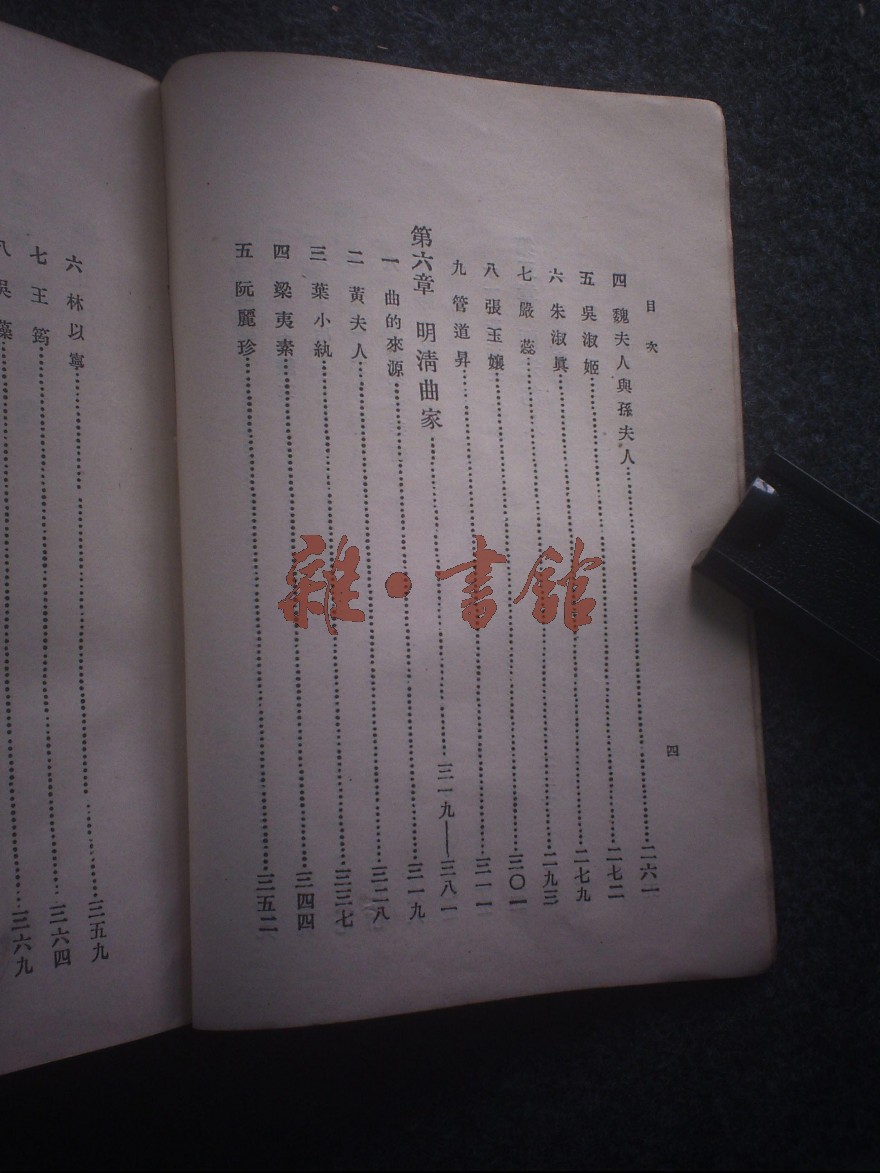 目次
四
四 魏夫人與孫夫人 二六一
五 吳淑姬 二七二
六 朱淑眞 二七九
七 嚴蕊 二九三
八 張玉孃 三〇一
九 管道昇 三一一
第六章 明淸曲家 三一九——三八一
一 曲的來源 三一九
二 黃夫人 三二八
三 葉小紈 三三七
四 梁夷素 三四四
五 阮麗珍 三五二
六 林以寧 三五九
七 王筠 三六四
八 吳藻 三六九
雜·書館